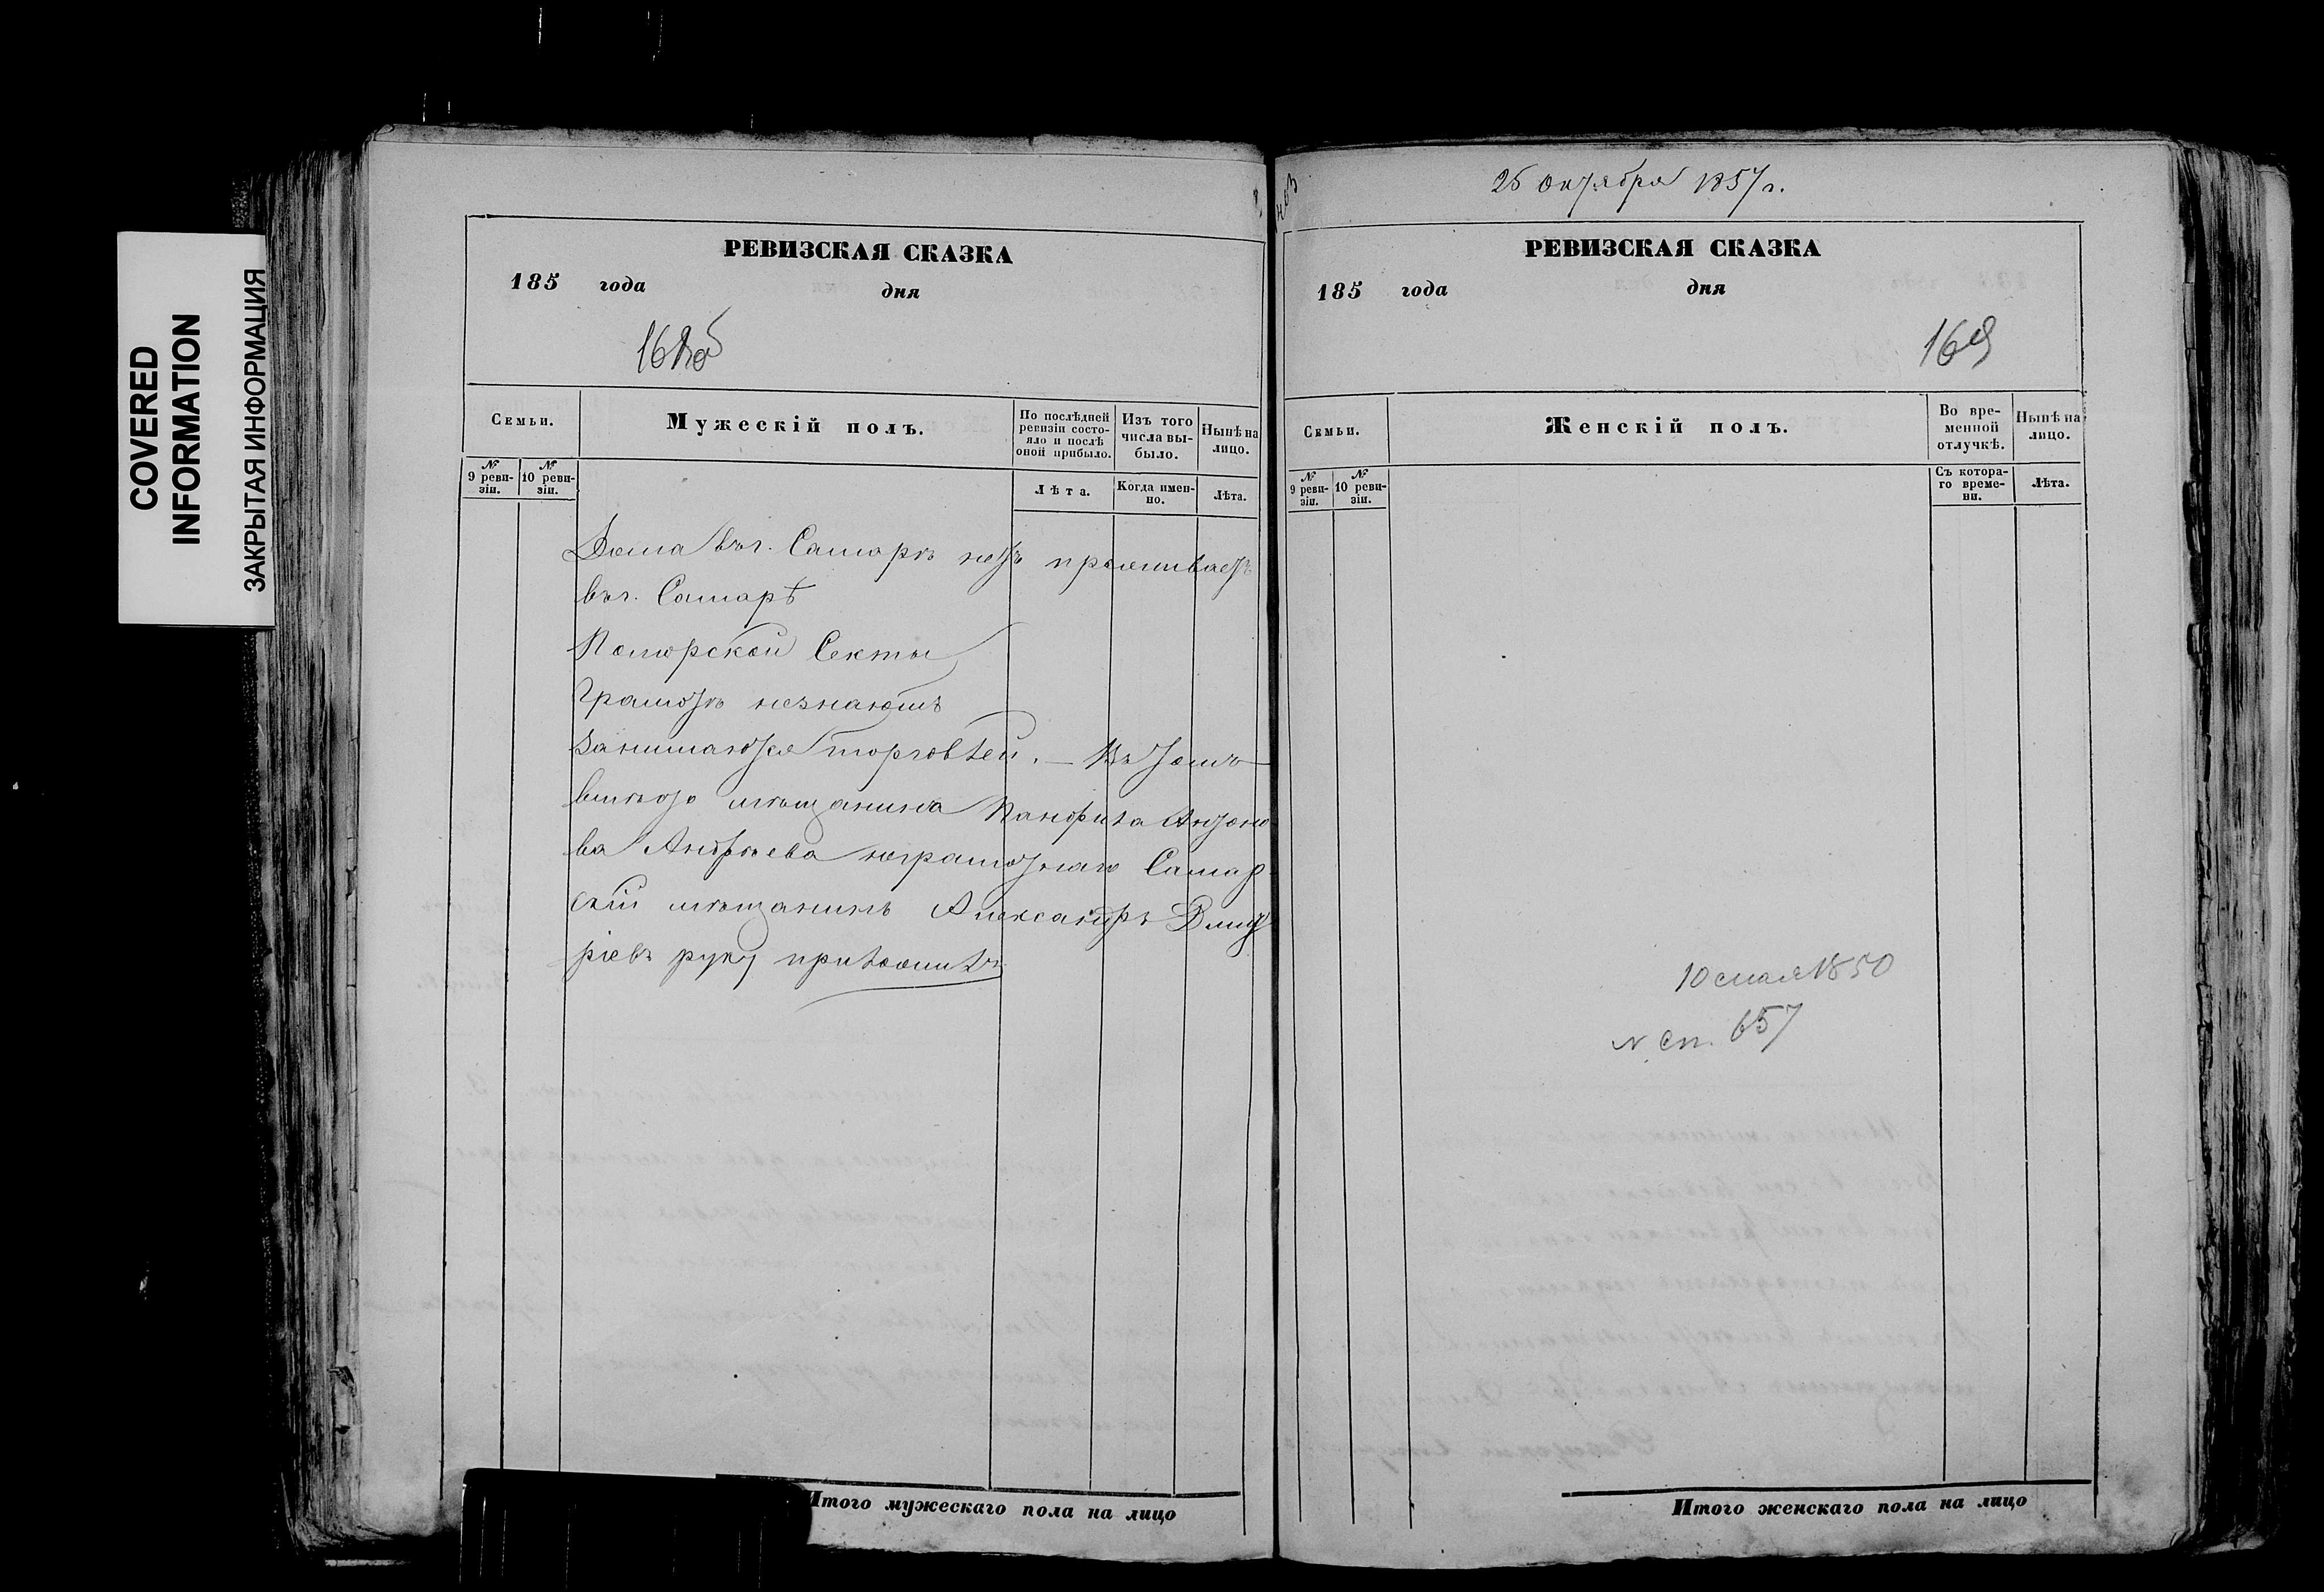 COVERED
INFORMATION
ЗАКРЫТАЯ ИНФОРМАЦИЯ
РЕВИЗСКАЯ СКАЗКА
185 года дня
Семьи.
Мужескій полъ.
По послѣдней
ревизіи состо-
яло и послѣ
оной прибыло.
Изъ того
числа вы-
было.
Нынѣ на
лицо.
№
9 реви-
зіи.
№
10 реви-
зіи.
Лѣта.
Когда имен-
но.
Лѣта.
Дома въ г. Самаръ нетъ проживаетъ
въ г. Самарѣ
Поморской Секты
Грамотъ незнаютъ
Занимаются торговлей. — Въ томъ
вместо мещанина Панфила Антоно
ва Андреева неграмотнаго Самар
скій мещанинъ Александръ Дмит
ріевъ руку приложилъ
Итого мужескаго пола на лицо
25 Октября 1857 г.
РЕВИЗСКАЯ СКАЗКА
185 года дня
169
Семьи.
Женскій полъ.
Во вре-
менной
отлучкѣ.
Нынѣ на
лицо.
№
9 реви-
зіи.
№
10 реви-
зіи.
Съ котора-
го време-
ни.
Лѣта.
10 мая 1850
N сп. 657
Итого женскаго пола на лицо